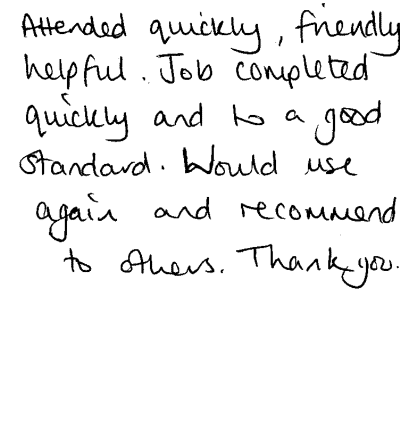 Attended quickly, friendly
helpful. Job completed
quickly and to a good
standard. Would use
again and recommend
to others. Thank you.